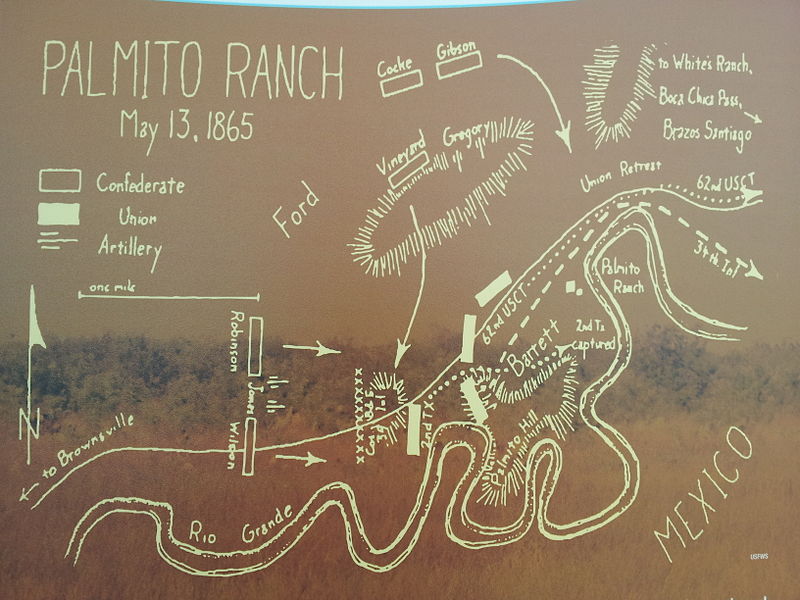 PALMITO RANCH
May 13, 1865
Confederate
Union
Artillery
one mile
N
to Brownsville
Rio Grande
Ford
Cocke
Gibson
Vineyard
Gregory
to White's Ranch,
Boca Chica Pass,
Brazos Santiago
Union Retreat
62nd USCT
34th Inf
Palmito
Ranch
62nd USCT
Barrett
2nd Tx
captured
Robinson
Jones
Wilson
2nd TX
Palmito Hill
MEXICO
USFWS